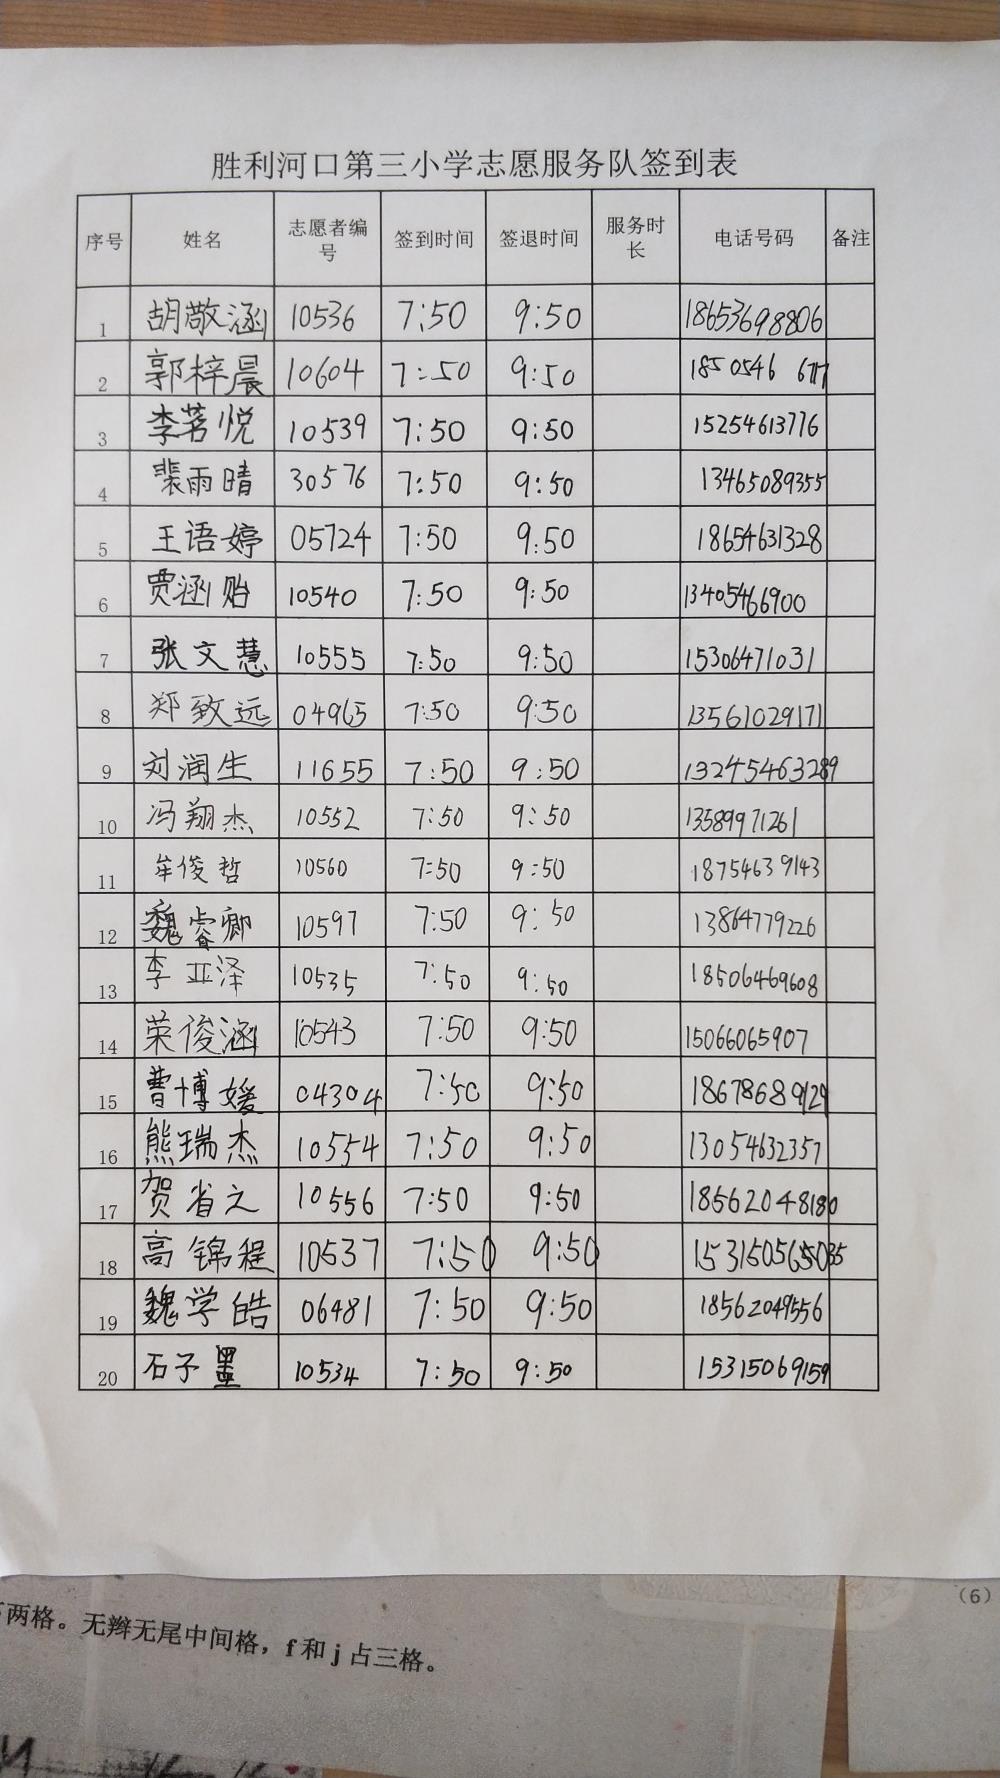 胜利河口第三小学志愿服务队签到表
序号 姓名 志愿者编号 签到时间 签退时间 服务时长 电话号码 备注
1 胡敬涵 10536 7:50 9:50 18653698806
2 郭梓晨 10604 7:50 9:50 1850546
3 李茗悦 10539 7:50 9:50 15254613776
4 裴雨晴 30576 7:50 9:50 13465089355
5 王语婷 05724 7:50 9:50 18654631328
6 贾涵贻 10540 7:50 9:50 13405466900
7 张文慧 10555 7:50 9:50 15306471031
8 郑致远 04965 7:50 9:50 13561029171
9 刘润生 11655 7:50 9:50 13245463289
10 冯翔杰 10552 7:50 9:50 13589971261
11 牟俊哲 10560 7:50 9:50 18754639143
12 魏睿卿 10597 7:50 9:50 13864779226
13 李亚泽 10535 7:50 9:50 18506469608
14 荣俊涵 10543 7:50 9:50 15066065907
15 曹博媛 04304 7:50 9:50 18678689129
16 熊瑞杰 10554 7:50 9:50 13054632357
17 贺省之 10556 7:50 9:50 18562048180
18 高锦程 10537 7:50 9:50
19 魏学皓 06481 7:50 9:50 18562049556
20 石子墨 10534 7:50 9:50 15315069159
(6)
两格。无辫无尾中间格，f和j占三格。